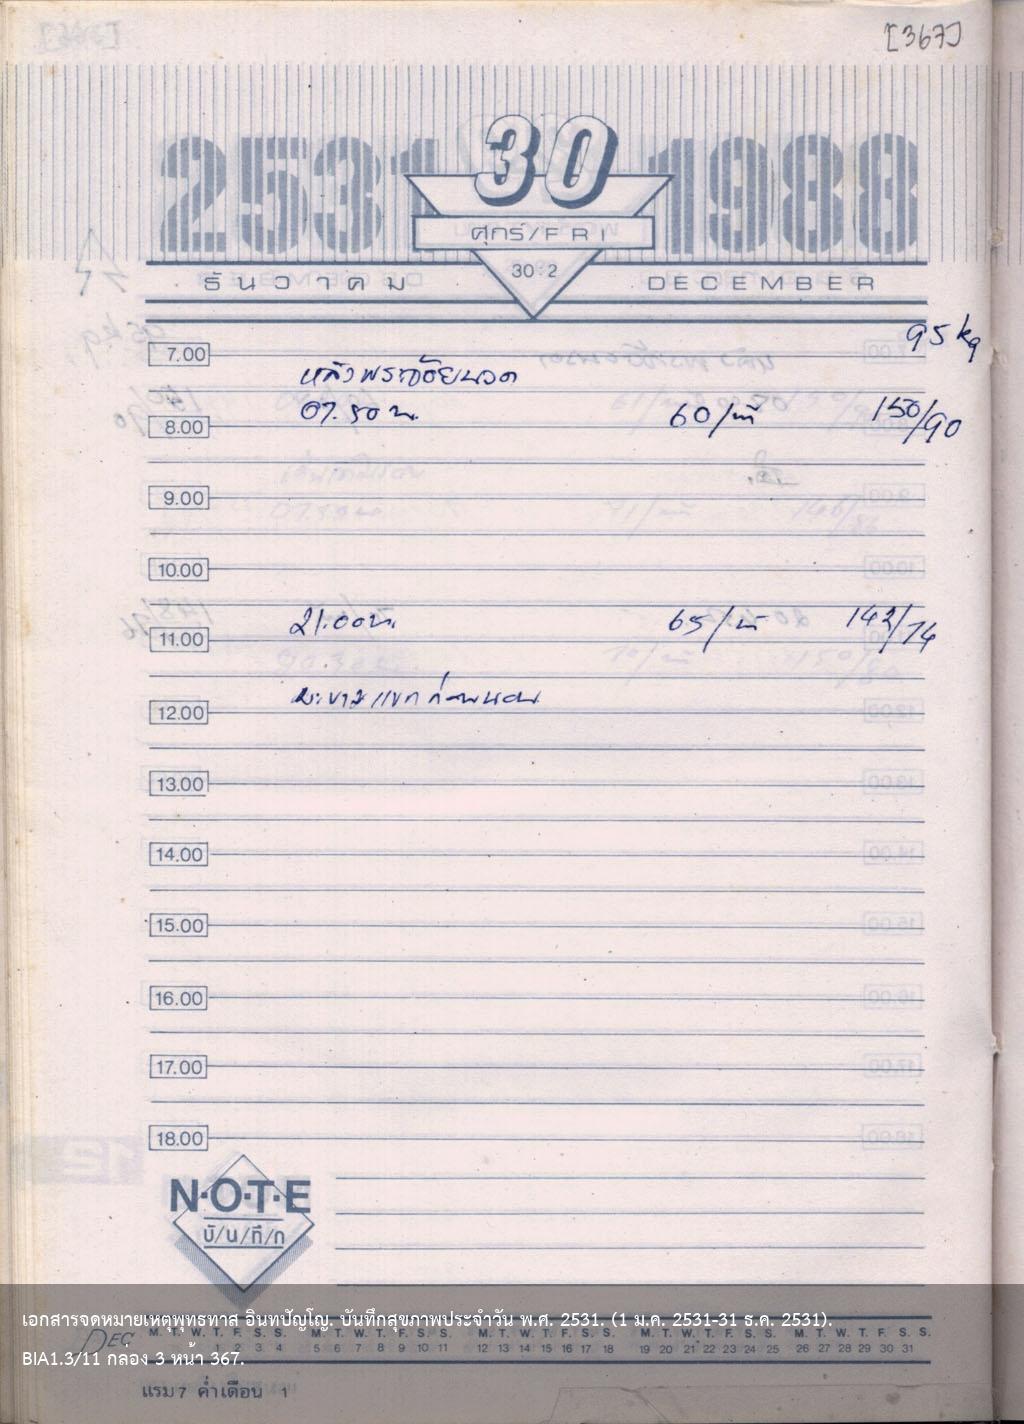 [367]
2531 30 1988
ศุกร์/FRI
30:2
ธันวาคม DECEMBER
95 kg
7.00
หลังพระวิชัยนวด
07.50 น. 60/น 150/90
8.00
9.00
10.00
21.00 น. 65/น 142/74
11.00
มะขามแขก ก่อนนอน
12.00
13.00
14.00
15.00
16.00
17.00
18.00
N·O·T·E
บั/น/ทึ/ก
เอกสารจดหมายเหตุพุทธทาส อินทปัญโญ. บันทึกสุขภาพประจำวัน พ.ศ. 2531. (1 ม.ค. 2531-31 ธ.ค. 2531).
DEC M. T. W. T. F. S. S. M. T. W. T. F. S. S. M. T. W. T. F. S. S. M. T. W. T. F. S. S. M. T. W. T. F. S. S.
1 2 3 4 5 6 7 8 9 10 11 12 13 14 15 16 17 18 19 20 21 22 23 24 25 26 27 28 29 30 31
BIA1.3/11 กล่อง 3 หน้า 367.
แรม 7 ค่ำเดือน 1